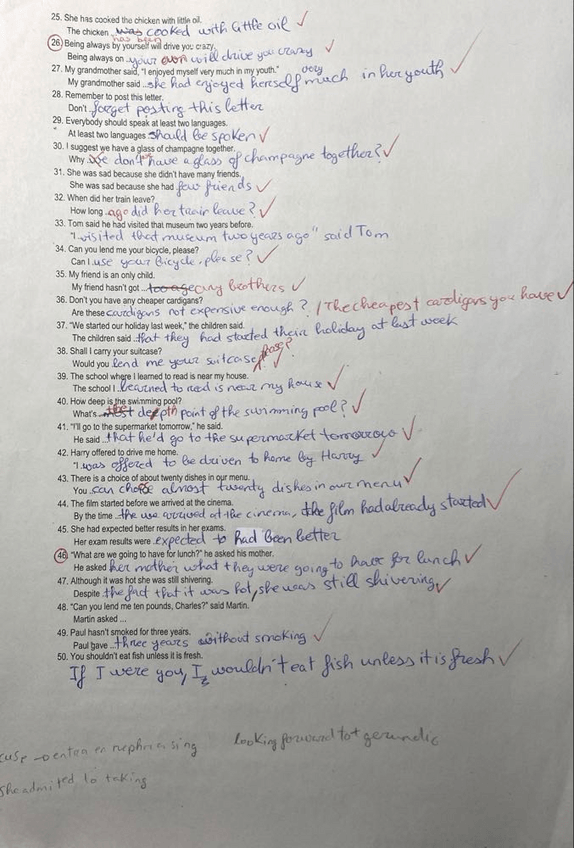 25. She has cooked the chicken with little oil.
The chicken was cooked with little oil ✓
has been
26) Being always by yourself will drive you crazy.
Being always on your own will drive you crazy ✓
27. My grandmother said, "I enjoyed myself very much in my youth."
My grandmother said...she had enjoyed herself very much in her youth ✓
28. Remember to post this letter.
Don't forget posting this letter
29. Everybody should speak at least two languages.
At least two languages should be spoken ✓
30. I suggest we have a glass of champagne together.
Why don't we have a glass of champagne together? ✓
31. She was sad because she didn't have many friends.
She was sad because she had few friends ✓
32. When did her train leave?
How long ago did her train leave? ✓
33. Tom said he had visited that museum two years before.
"I visited that museum two years ago" said Tom
34. Can you lend me your bicycle, please?
Can I use your bicycle, please? ✓
35. My friend is an only child.
My friend hasn't got any brothers ✓
36. Don't you have any cheaper cardigans?
Are these cardigans not expensive enough? / The cheapest cardigans you have ✓
37. "We started our holiday last week," the children said.
The children said...that they had started their holiday at last week
38. Shall I carry your suitcase?
Would you lend me your suitcase
39. The school where I learned to read is near my house.
The school I learned to read is near my house ✓
40. How deep is the swimming pool?
What's the depth point of the swimming pool? ✓
41. "I'll go to the supermarket tomorrow," he said.
He said...that he'd go to the supermarket tomorrow ✓
42. Harry offered to drive me home.
"I was offered to be driven to home by Harry ✓
43. There is a choice of about twenty dishes in our menu.
You can choose almost twenty dishes in our menu ✓
44. The film started before we arrived at the cinema.
By the time ...the we arrived at the cinema, the film had already started ✓
45. She had expected better results in her exams.
Her exam results were expected to had been better
46) "What are we going to have for lunch?" he asked his mother.
He asked her mother what they were going to have for lunch ✓
47. Although it was hot she was still shivering.
Despite the fact that it was hot, she was still shivering ✓
48. "Can you lend me ten pounds, Charles?" said Martin.
Martin asked ...
49. Paul hasn't smoked for three years.
Paul gave ...three years without smoking ✓
50. You shouldn't eat fish unless it is fresh.
If I were you, I wouldn't eat fish unless it is fresh ✓
looking forward to + gerundio
She admited to taking